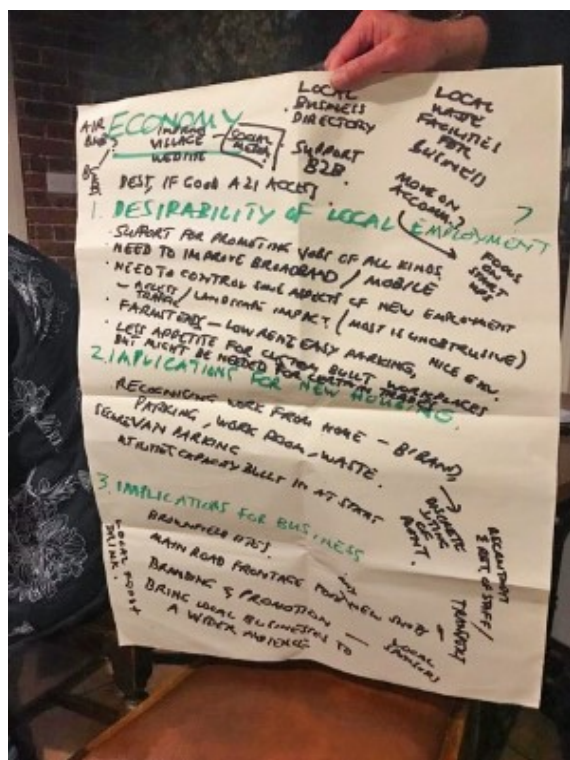 ECONOMY
AIR
B&B?
B&B
IMPROVE
VILLAGE
WEBSITE
SOCIAL
MEDIA
DEST, IF GOOD A21 ACCESS
LOCAL
BUSINESS
DIRECTORY
SUPPORT
B2B
LOCAL
WASTE
FACILITIES
FOR
BUSINESS
MOVE ON
ACCOMM.?
?
FOCUS
ON
START
UPS
1. DESIRABILITY OF LOCAL EMPLOYMENT
· SUPPORT FOR PROMOTING JOBS OF ALL KINDS
· NEED TO IMPROVE BROADBAND / MOBILE
· NEED TO CONTROL SOME ASPECTS OF NEW EMPLOYMENT
– ACCESS / LANDSCAPE IMPACT (MOST IS UNOBTRUSIVE)
TRAFFIC
· FARMSTEADS – LOW RENT EASY PARKING, NICE ENV.
· LESS APPETITE FOR CUSTOM BUILT WORKPLACES
BUT MIGHT BE NEEDED FOR CERTAIN TRADES
2. IMPLICATIONS FOR NEW HOUSING.
RECOGNISING WORK FROM HOME – B'BAND,
PARKING, WORK ROOM, WASTE.
SECURE VAN PARKING
CAPACITY BUILT IN AT START
DISCRETE
SITING
OF
3. IMPLICATIONS FOR BUSINESS
BROWNFIELD SITES.
MAIN ROAD FRONTAGE FOR NEW SHOPS
BRANDING & PROMOTION – LOCAL
SPONSORS
BRING LOCAL BUSINESSES TO
A WIDER AUDIENCE
LOCAL FOOD &
DRINK.
RECRUITMENT
& RET. OF STAFF /
TRANSPORT